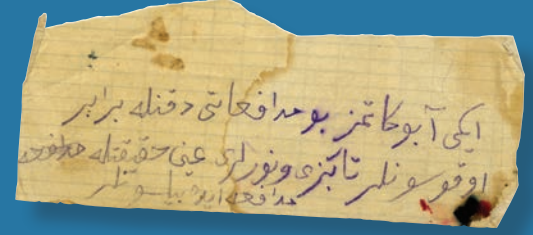 ايكى آبوكاتمز بو مدافعاتى دقتله برابر
اوقوسونلر تا كزى ونورلرى عينى حقيقتله مدافعه
مدافعه ايده بيلسونلر